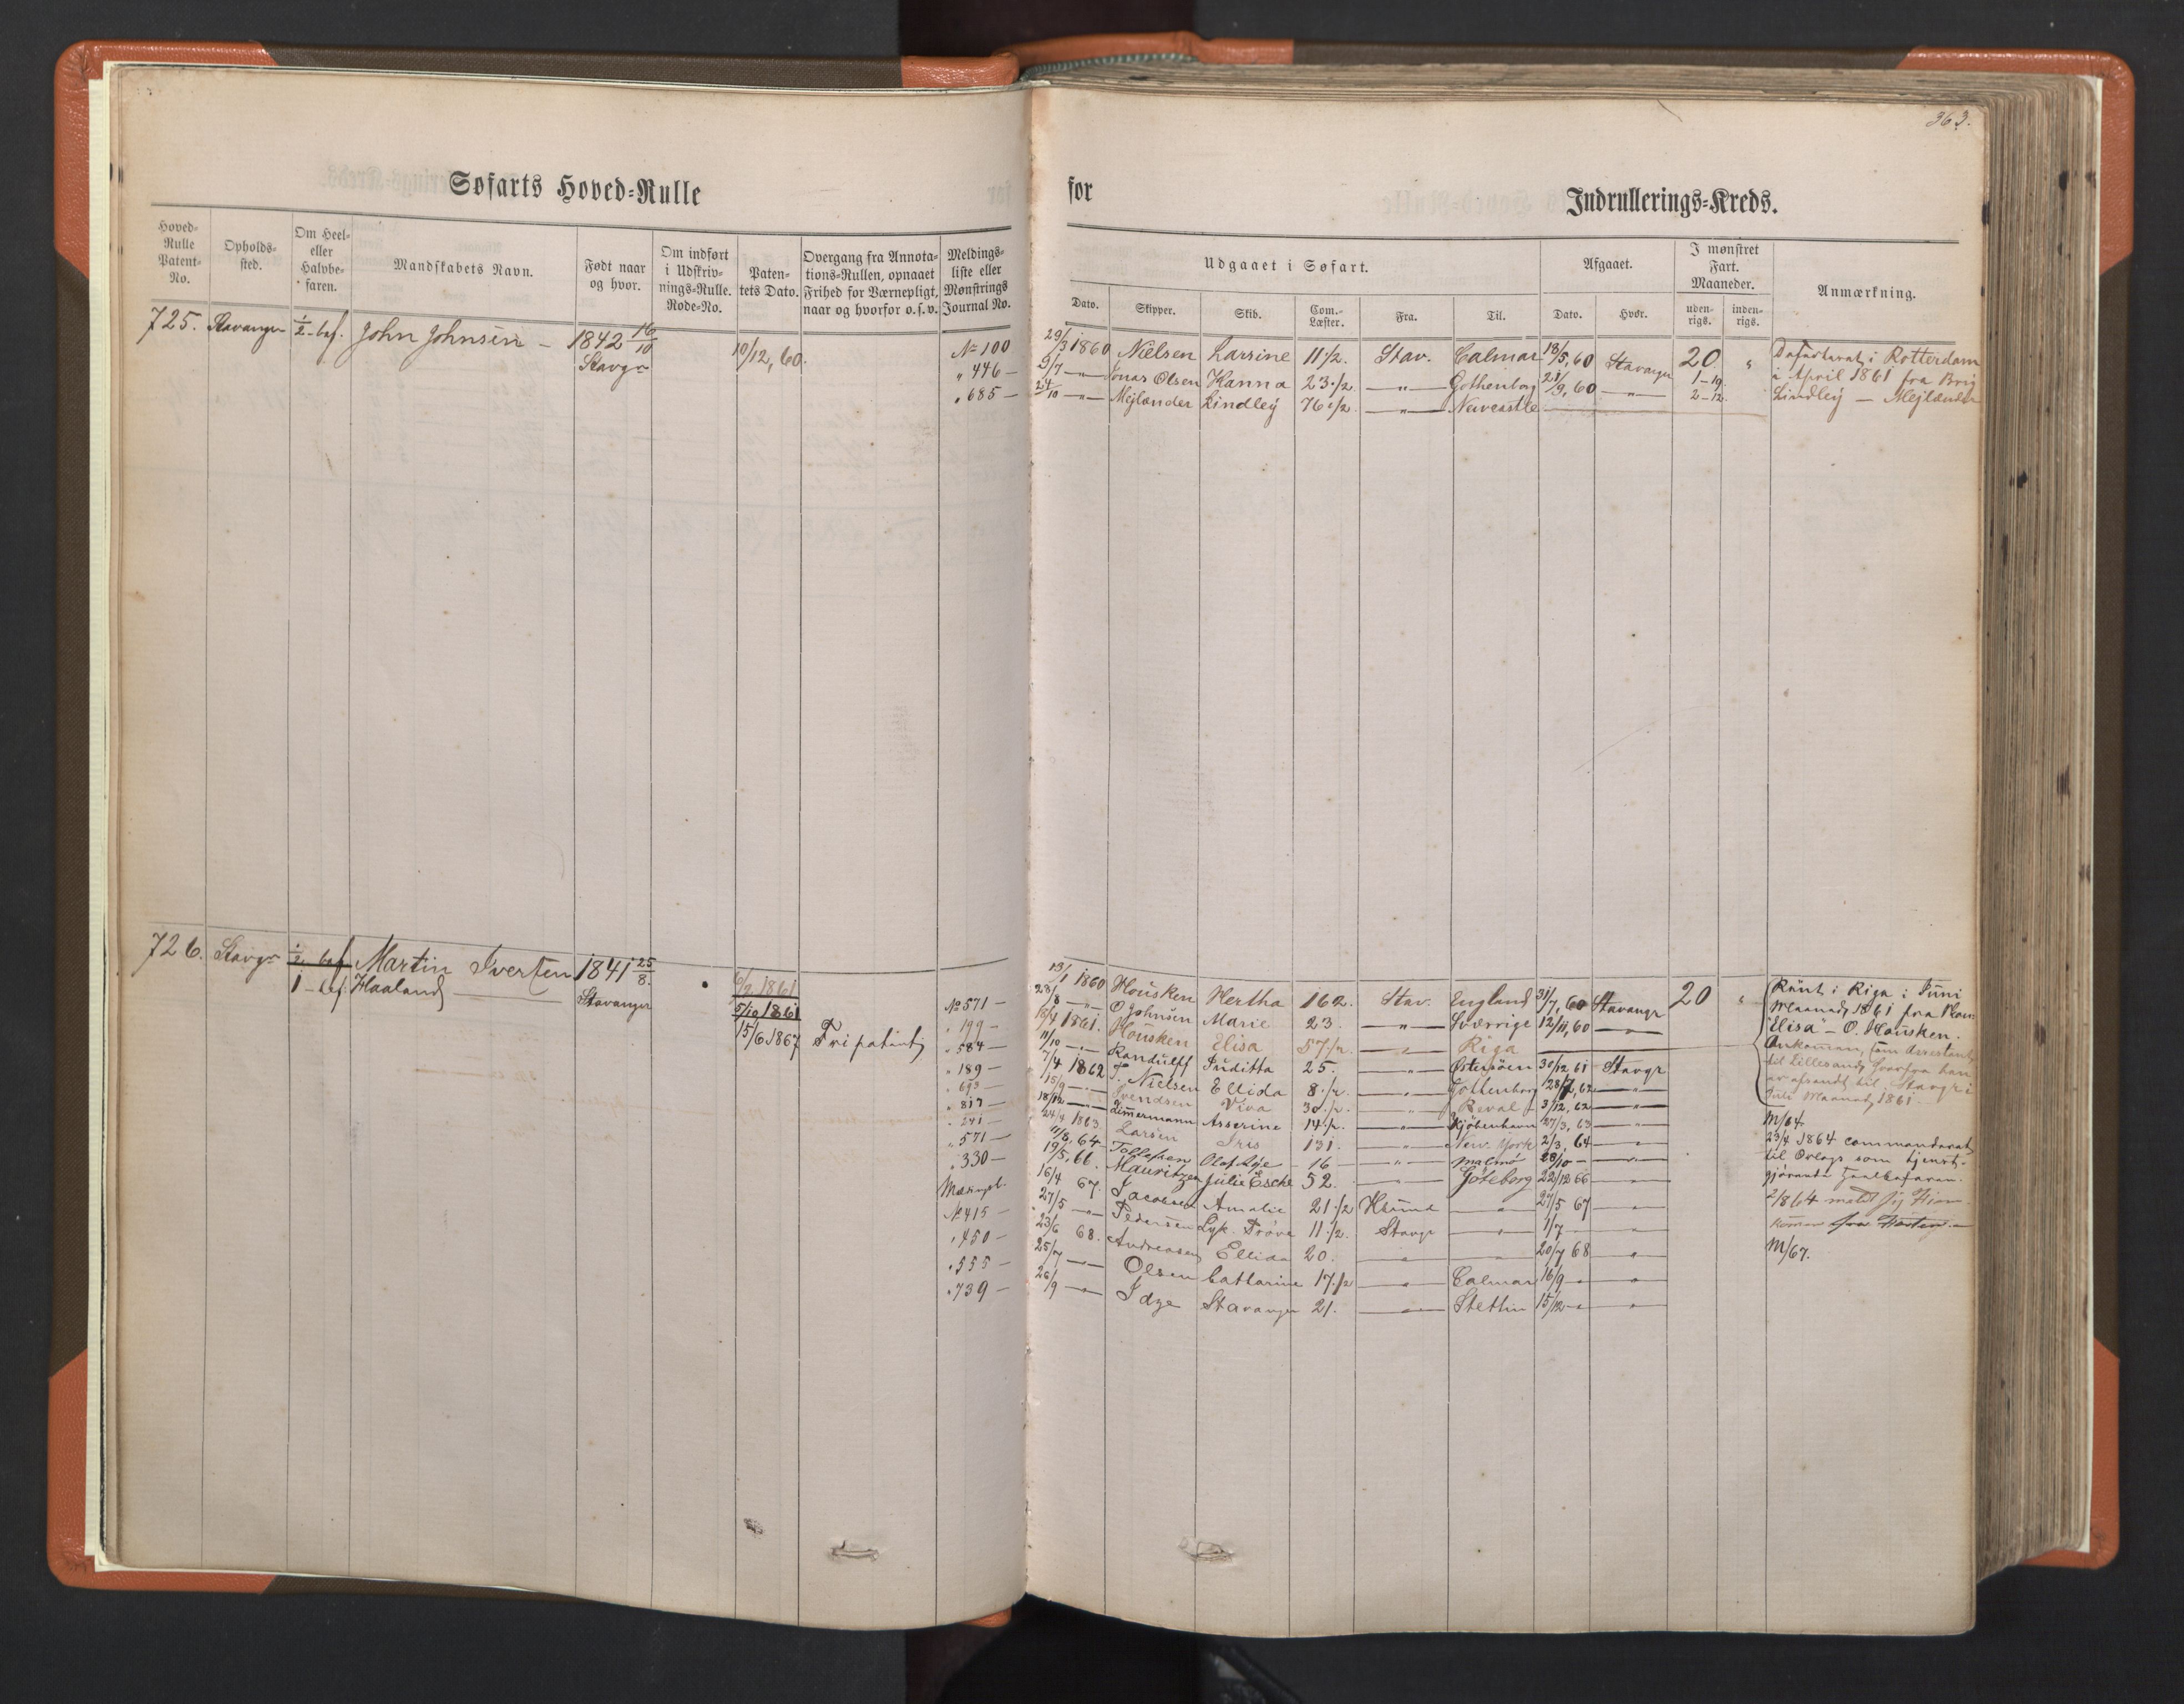 363.
Søfarts Hoved-Rulle
for
Indrullerings-Kreds.
Hoved-Rulle Patent-No.
Opholds-sted.
Om Heel- eller Halvbe-faren.
Mandskabets Navn.
Født naar og hvor.
Om indført i Udskriv-nings-Rulle. Rode-No.
Paten-tets Dato.
Overgang fra Annota-tions-Rullen, opnaaet Frihed for Værnepligt, naar og hvorfor o.s.v.
Meldings-liste eller Mønstrings Journal No.
Udgaaet i Søfart.
Dato. Skipper. Skib. Com.-Læster. Fra. Til.
Afgaaet.
Dato. Hvor.
I mønstret Fart. Maaneder.
uden-rigs. inden-rigs.
Anmærkning.
725. Stavanger 1/2 - bef. John Johnsen - 1842 16/10 Stavgr 10/12, 60.
No 100 29/3 1860 Nielsen Larsine 11 1/2. Stav. Calmar 18/5, 60 Stavanger 20. "
" 446 - 5/7 -"- Jonas Olsen Hanna 23 1/2. -"- Gothenborg 21/9, 60 -"- 1-19.
" 685 - 24/10 -"- Mejlænder Lindley 76 1/2 -"- Newcastle 2-12.
Deserteret i Rotterdam
i April 1861 fra Brig
Lindley - Mejlænder
726. Stavgr 1/2 bef. Martin Iversen 1841 25/8.
1 - bef. Haaland Stavanger
1861
5/10 1861
15/6 1867 Fripatent
No 571 - 13/1 1860 Housken Hertha 162. Stav. England 31/7, 60 Stavangr 20 "
" 199 - 28/8 -"- O Johnsen Marie 23. -"- Sverrige 12/11, 60 -"-
" 584 - 18/4 1861. Housken Elisa 57 1/2. -"- Riga
" 189 - 11/10 -"- Randulff Juditta 25. -"- Østersöen 30/12, 61 Stavgr
" 693 - 7/4 1862 J. Nielsen Ellida 8 1/2. -"- Gothenborg 28/7, 62 -"-
" 817 - 15/9 -"- Svendsen Viva 30 1/2. -"- Reval 3/12, 62 -"-
" 241 - 18/12 -"- Zimmermann Asserine 14 1/2. -"- Kjöbenhavn 27/3, 63 -"-
" 571 - 24/4 1863. Larsen Iris 131. -"- New York 2/3, 64 -"-
" 330 - 11/8, 64 Tollefsen Olaf 16 -"- Malmö 28/10 - -"-
19/5, 66. Mauritzen Julie Esche 52. -"- Göteborg 22/12 66 -"-
No 415 - 16/4 67. Jacobsen Amalie 21 1/2 -"- 27/5 67 -"-
" 450 - 27/5 -"- Pedersen Lyk. Pröve 11 1/2. Stavgr -"- 1/7 -"-
" 555 - 23/6 68. Andreasen Ellida 20. -"- -"- 20/7 68 -"-
25/7 -"- Olsen Cathrine 17 1/2 -"- Calmar 16/9 -"- -"-
" 739 - 26/9 -"- Idze Stavanger 21. -"- Stettin 15/12 -"- -"-
Rømt i Riga i Juni
Maaned 1861 fra
"Elisa" - O. Housken.
Ankommen, som Arrestant
til Lillesand, hvorfra han
er afsendt til Stavgr i
Juli Maaned 1861.
M/64
23/4 1864 commanderet
til Orlogs som tjenst-
gjørende heelbefaren.
2/8 64 meldt sig Hjem-
kommen fra Horten. -
M/67.